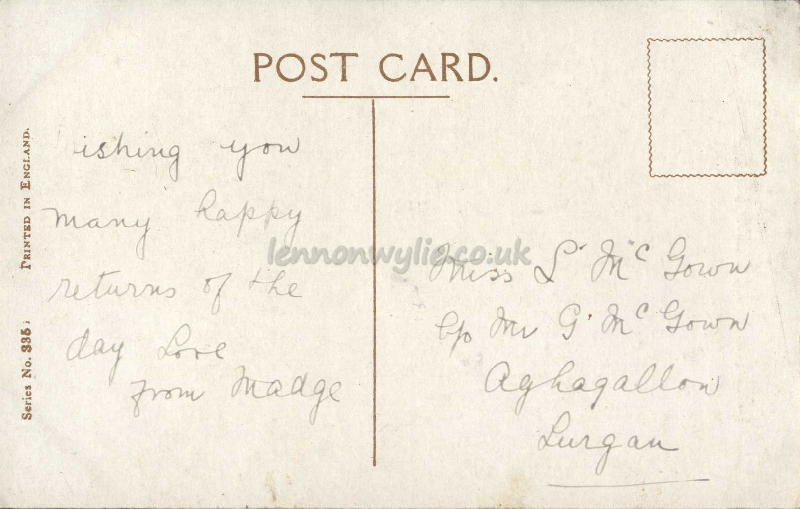 POST CARD.
ishing you
many happy
returns of the
day Love
from Madge
Miss L McGown
c/o Mr G. McGown
Aghagallow
Lurgan
Series No. 335.
PRINTED IN ENGLAND.
lennonwylie.co.uk